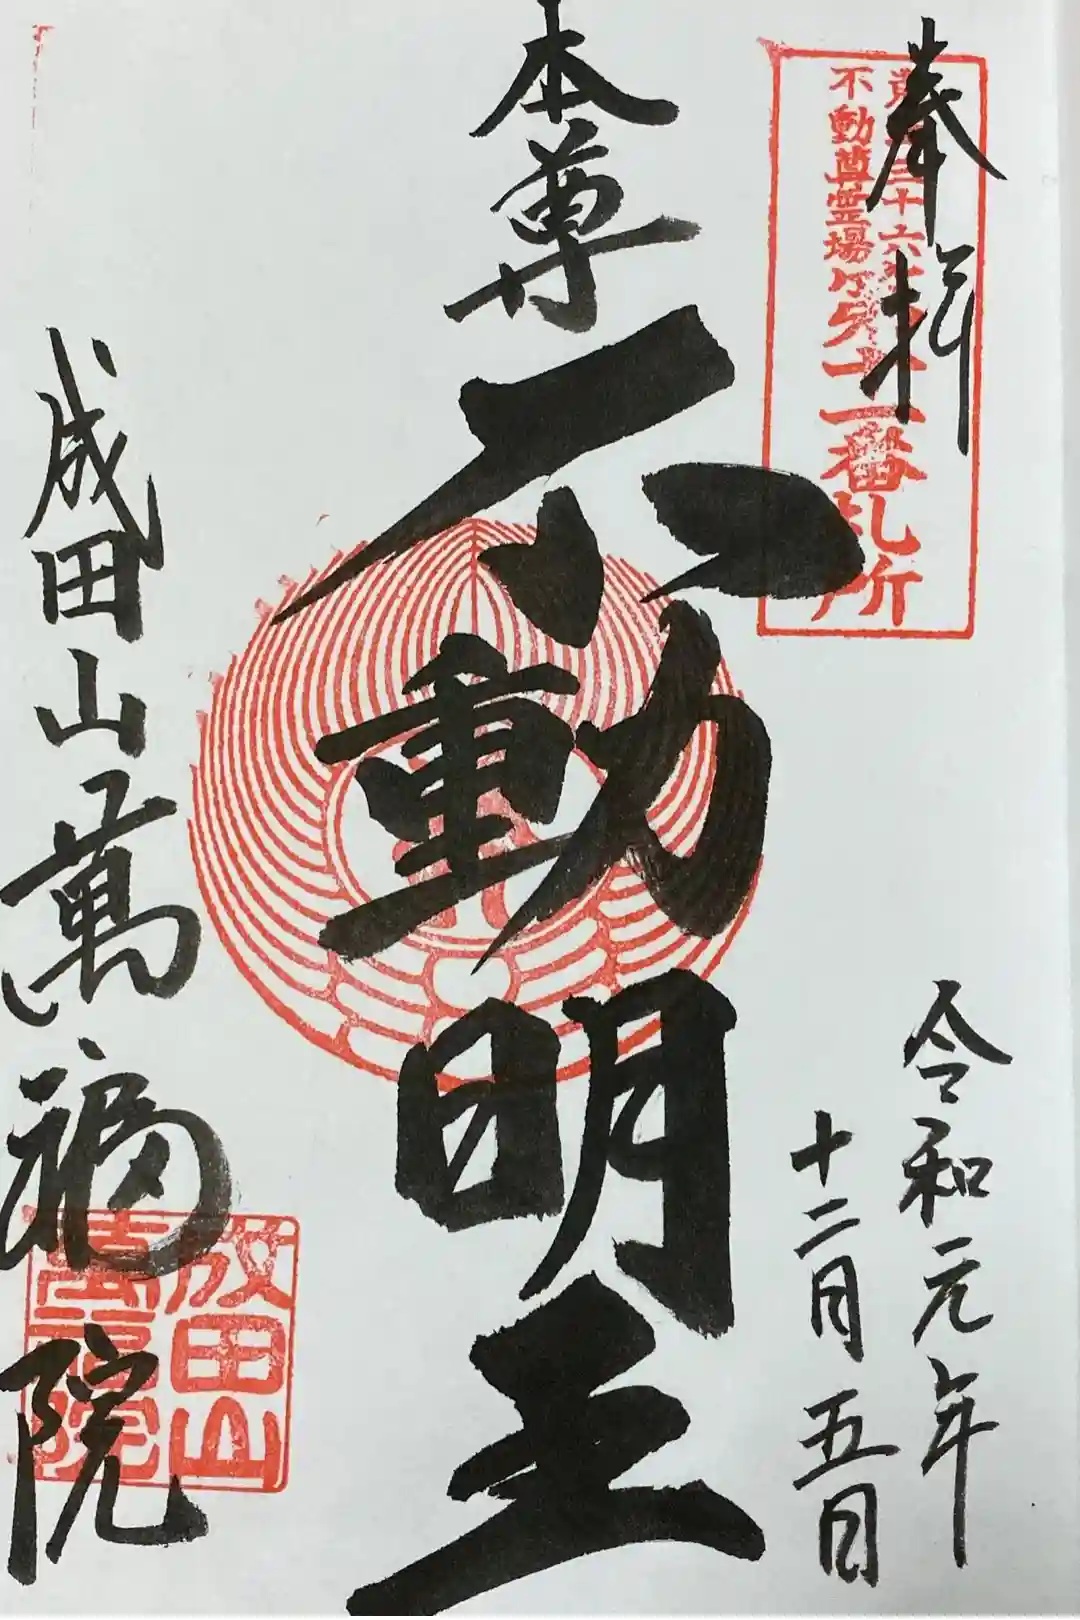 奉拝
三十六
不動尊霊場
第十一番札所
令和元年
十二月五日
本尊
不動明王
成田山萬福院
成田山
萬福院